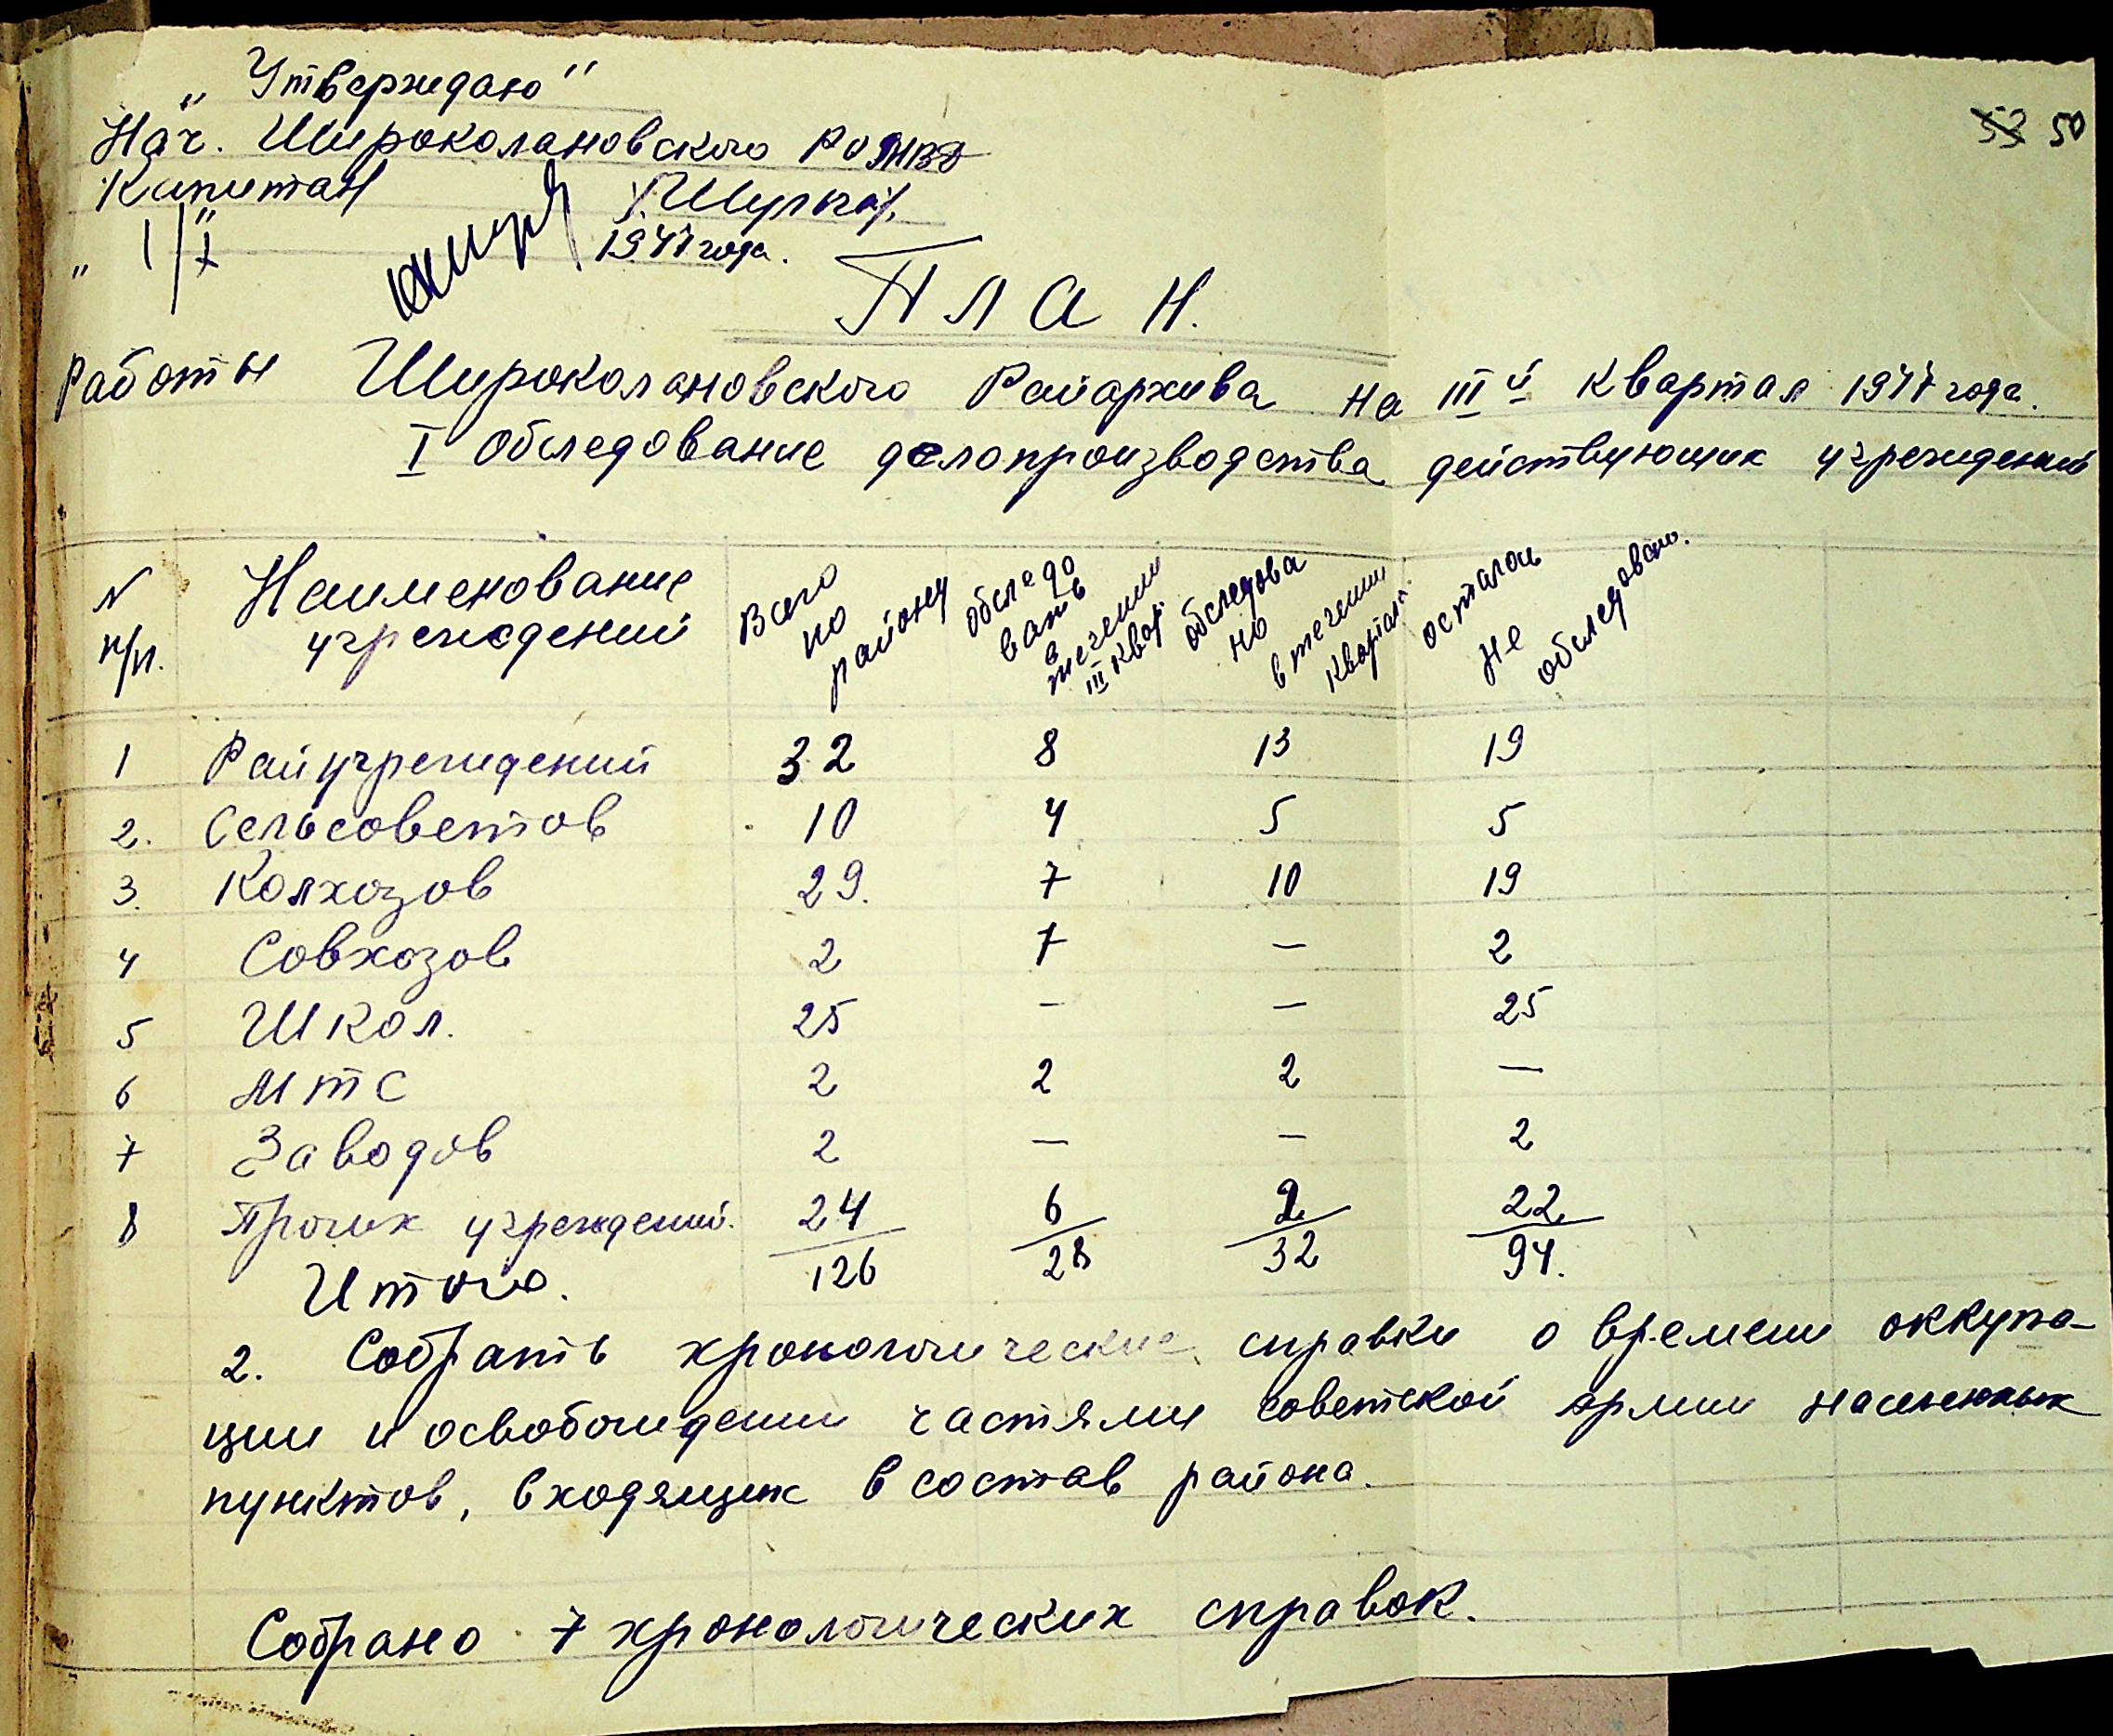 „Утверждаю“
53 50
Нач. Широколановского РО МВД
Капитан /Шулька/.
„1/X“ 1947 года.
План.
Работы Широколановского Райархива на III й квартал 1947 года.
I Обследование делопроизводства действующих учреждений
N п/п. Наименование учреждений Всего по району Обследовать в течении III квар. Обследовано в течении квартала осталось не обследовано.
1 Райучреждений 32 8 13 19
2. Сельсоветов 10 4 5 5
3. Колхозов 29. 7 10 19
4 Совхозов 2 1 — 2
5 Школ. 25 — — 25
6 МТС 2 2 2 —
7 Заводов 2 — — 2
8 Прочих учреждений. 24 6 2 22
Итого. 126 28 32 94.
2. Собрать хронологические справки о времени оккупа-
ции и освобождении частями советской армии населенных
пунктов, входящих в состав района.
Собрано 7 хронологических справок.